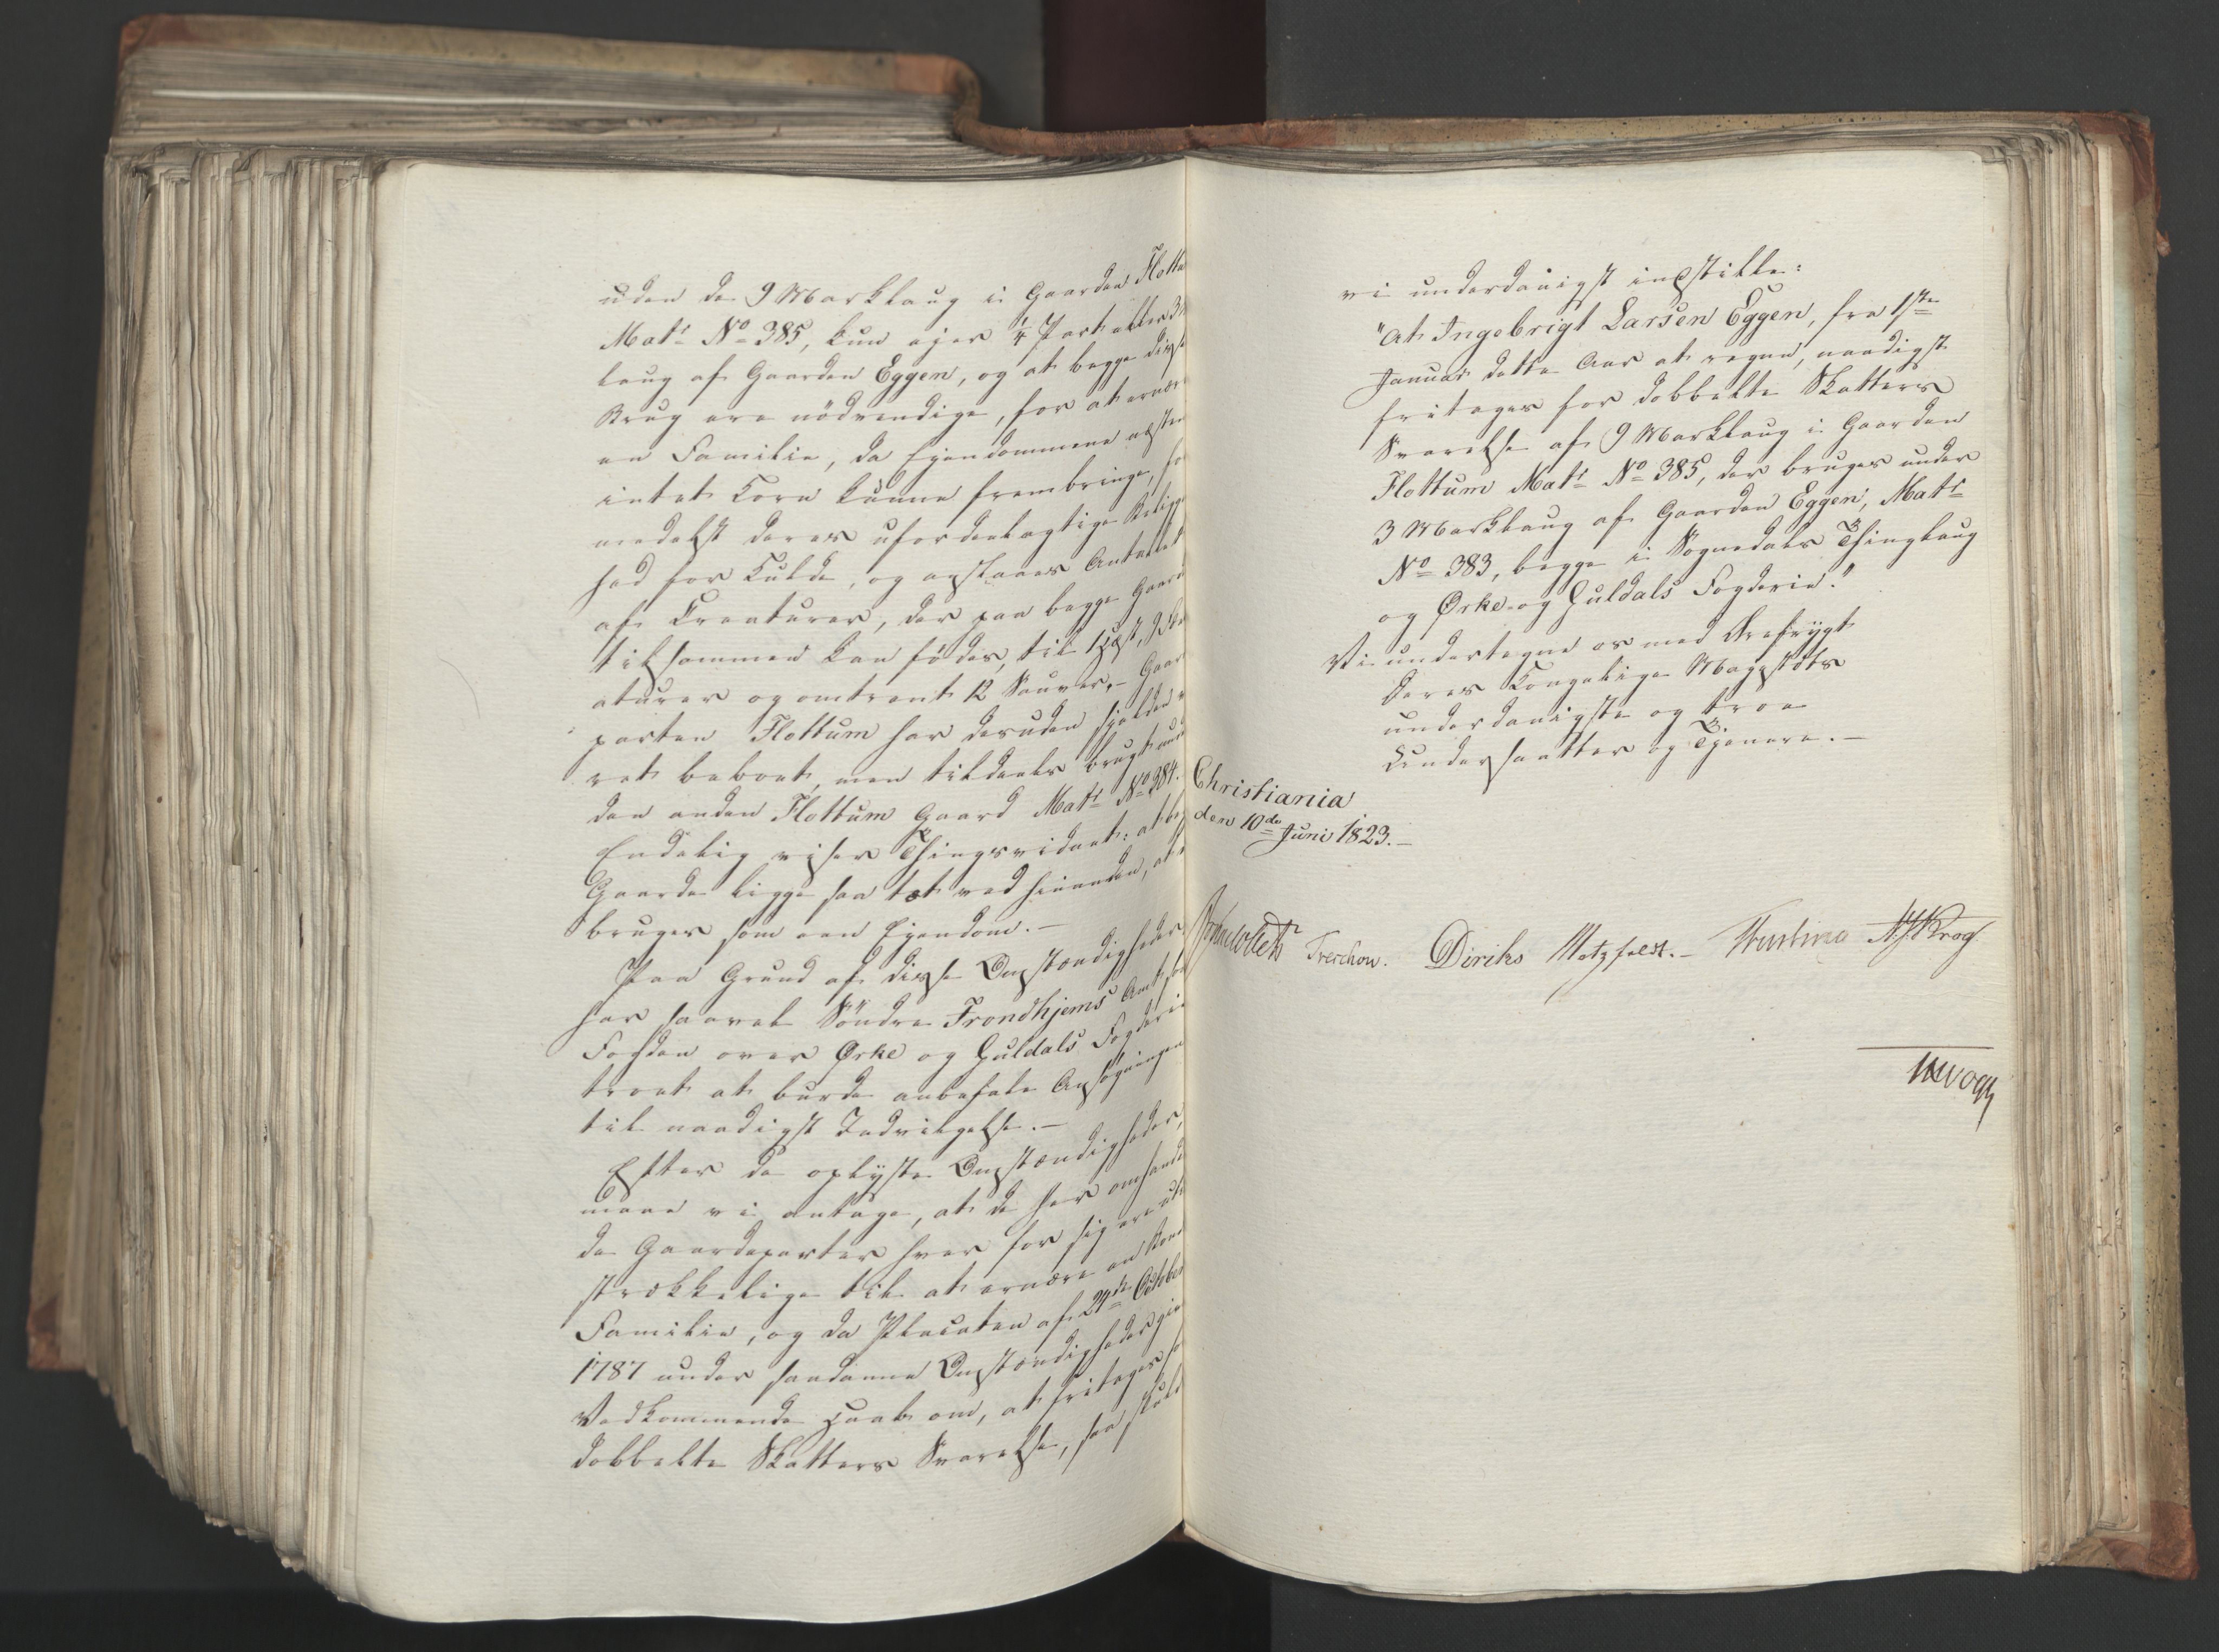 uden de 9 Marklaug i Gaarden Flottu
Matr No 385, kun ejer 1/4 Part eller 3
laug af Gaarden Eggen, og at begge disse
Brug ere nödvendige, for at ernære
en Familie, da Ejendommene næsten
intet Korn kunne frembringe, for
medelst deres ufordeelagtige Belig
hed for Kulde, og opstaaer Antallet
af Creaturer, der paa begge Gaard
tilsammen kan födes, til 1 Hest, 9
aturer og omtrent 12 Sauver,- Gaard
parten Flottum har desuden sjelden
ret beboet, men tildeels brugt und
den anden Flottum Gaard Matr No 384.
Endelig viser Thingsvidnet: at
Gaarde ligge saa tæt ved hinanden, at
bruges som een Ejendom.-
Paa Grund af disse Omstændigheder
har saavel Söndre Trondhjems Amt som
Fogden over Orke og Guldals Fogderie
troet at burde anbefale Ansögningen
til naadigst Indvilgelse.-
Efter de oplyste Omstændigheder,
maae vi antage, at de her omhand
de Gaardeparter hver for sig ere util
strækkelige til at ernære en Bond
Familie, og da Placaten af 24de October
1787 under saadanne Omstændigheder giv
Vedkommende Haab om, at fritages for
dobbelte Skatters Svarelse, saa skul
vi underdanigst indstille:
"At Ingebrigt Larsen Eggen, fra 1ste
Januar dette Aar at regne, naadigst
fritages for dobbelte Skatters
Svarelse af 9 Marklaug i Gaarden
Flottum Matr No 385, der bruges under
3 Marklaug af Gaarden Eggen, Matr
No 383, begge i Sognedals Thinglaug
og Orke og Guldals Fogderie."
Vi undertegne os med Ærefrygt
Deres Kongelige Majestæts
underdanigste og troe
Undersaatter og Tjenere.-
Christiania
den 10de Juni 1823.-
Treschow. Diriks Motzfeldt.- Krog